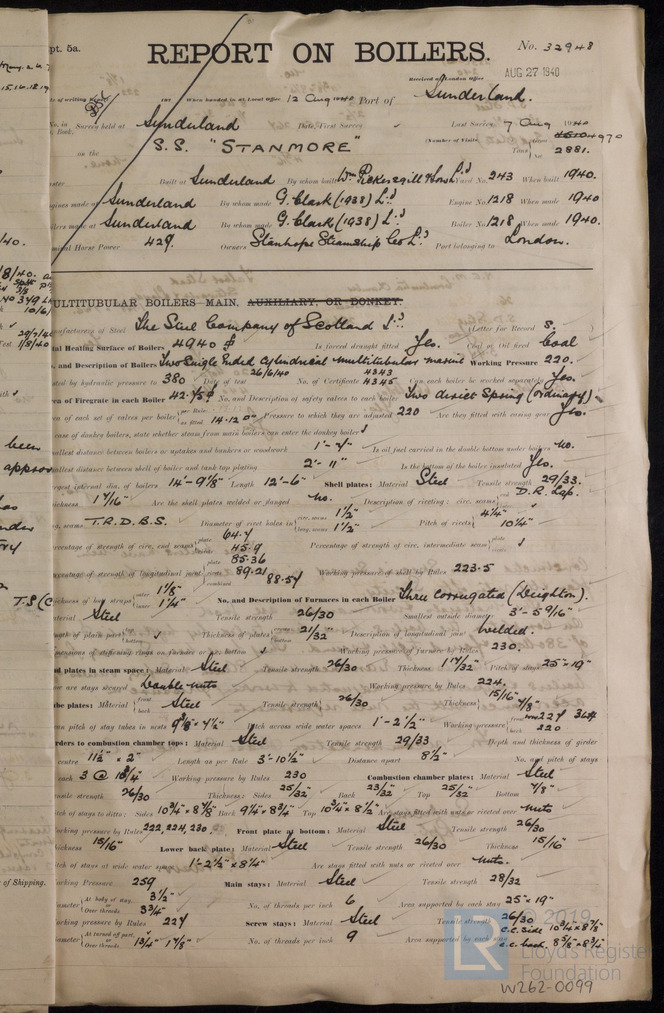 pt. 5a.
REPORT ON BOILERS.
No. 32948
AUG 27 1940
Received at London Office
When handed in at Local Office 12 Aug 1940 Port of Sunderland.
Survey held at Sunderland Date, First Survey Last Survey 7 Aug 1940
on the S.S. "STANMORE" (Number of Visits
Tons 4970
2881.
Built at Sunderland By whom built Wm Pickersgill & Sons Ld. Yard No. 243 When built 1940.
Engines made at Sunderland By whom made G. Clark (1938) Ld. Engine No. 1218 When made 1940
Boilers made at Sunderland By whom made G. Clark (1938) Ld. Boiler No. 1218 When made 1940.
Nominal Horse Power 429. Owners Stanhope Steamship Co Ld. Port belonging to London.
MULTITUBULAR BOILERS MAIN, AUXILIARY, OR DONKEY.
Manufacturers of Steel The Steel Company of Scotland Ld. (Letter for Record S.
Total Heating Surface of Boilers 4940 Is forced draught fitted Yes. Coal or Oil fired Coal
No. and Description of Boilers Two Single Ended Cylindrical multitubular marine Working Pressure 220.
Tested by hydraulic pressure to 380 Date of test 26/6/40 No. of Certificate 4343 4345 Can each boiler be worked separately Yes.
Area of Firegrate in each Boiler 42.75 No. and Description of safety valves to each boiler Two direct Spring (ordinary)
Area of each set of valves per boiler 14.120 Pressure to which they are adjusted 220 Are they fitted with easing gear Yes.
In case of donkey boilers, state whether steam from main boilers can enter the donkey boiler
Smallest distance between boilers or uptakes and bunkers or woodwork Is oil fuel carried in the double bottom under boilers no.
Smallest distance between shell of boiler and tank top plating 2'-11" Is the bottom of the boiler insulated Yes.
Largest internal dia. of boilers 14'-9 1/8" Length 12'-6" Shell plates: Material Steel Tensile strength 29/33.
Thickness 1 7/16" Are the shell plates welded or flanged no. Description of riveting: circ. seams end D.R. Lap.
long. seams T.R.D.B.S. Diameter of rivet holes in circ. seams 1 1/2" long. seams 1 1/2" Pitch of rivets 4 1/4" 10 1/4"
Percentage of strength of circ. end seams plate 64.7 rivets 45.9 Percentage of strength of circ. intermediate seam
Percentage of strength of longitudinal joint plate 85.36 rivets 89.21 combined 88.54 Working pressure of shell by Rules 223.5
Thickness of butt straps outer 1 1/8" inner 1 1/4" No. and Description of Furnaces in each Boiler Three corrugated (Deighton).
Material Steel Tensile strength 26/30 Smallest outside diameter 3'-5 9/16"
Length of plain part Thickness of plates 21/32" Description of longitudinal joint welded.
Dimensions of stiffening rings on furnace or c.c. bottom Working pressure of furnace by Rules 230.
End plates in steam space: Material Steel Tensile strength 26/30 Thickness 1 17/32" Pitch of stays 25" x 19"
How are stays secured Double nuts Working pressure by Rules 224.
Tube plates: Material Steel Tensile strength 26/30 Thickness 15/16" 7/8"
Mean pitch of stay tubes in nests 9 3/8" x 7 1/2" Pitch across wide water spaces 1'-2 1/2" Working pressure front 227 back 220
Girders to combustion chamber tops: Material Steel Tensile strength 29/33 Depth and thickness of girder
centre 11 1/2" x 2" Length as per Rule 3'-10 1/2" Distance apart 8 1/2" No. and pitch of stays
each 3 @ Working pressure by Rules 230 Combustion chamber plates: Material Steel
Tensile strength 26/30 Thickness: Sides 25/32" Back 23/32" Top 25/32" Bottom 7/8"
Pitch of stays to ditto: Sides 10 3/4" x 8 7/8" Back 9 1/4" x 8 3/4" Top 10 3/4" x 8 1/2" Are stays fitted with nuts or riveted over nuts
Working pressure by Rules 222, 224, 230. Front plate at bottom: Material Steel Tensile strength 26/30
Thickness 15/16" Lower back plate: Material Steel Tensile strength 26/30 Thickness 15/16"
Pitch of stays at wide water space 1'-2 1/2" x 8 1/4" Are stays fitted with nuts or riveted over nuts.
Working Pressure 259 Main stays: Material Steel Tensile strength 28/32
Diameter At body of stay, 3 1/2" or Over threads 3 3/4" No. of threads per inch 6 Area supported by each stay 25" x 19"
Working pressure by Rules 227 Screw stays: Material Steel Tensile strength 26/30
Diameter At turned off part, or Over threads 1 3/4" 1 7/8" No. of threads per inch 9 Area supported by each stay c.c. side 10 3/4" x 8 7/8"
c.c. back. 8 5/8" x 8 3/4"
© 2019
LR Lloyd's Register
Foundation
W262-0099